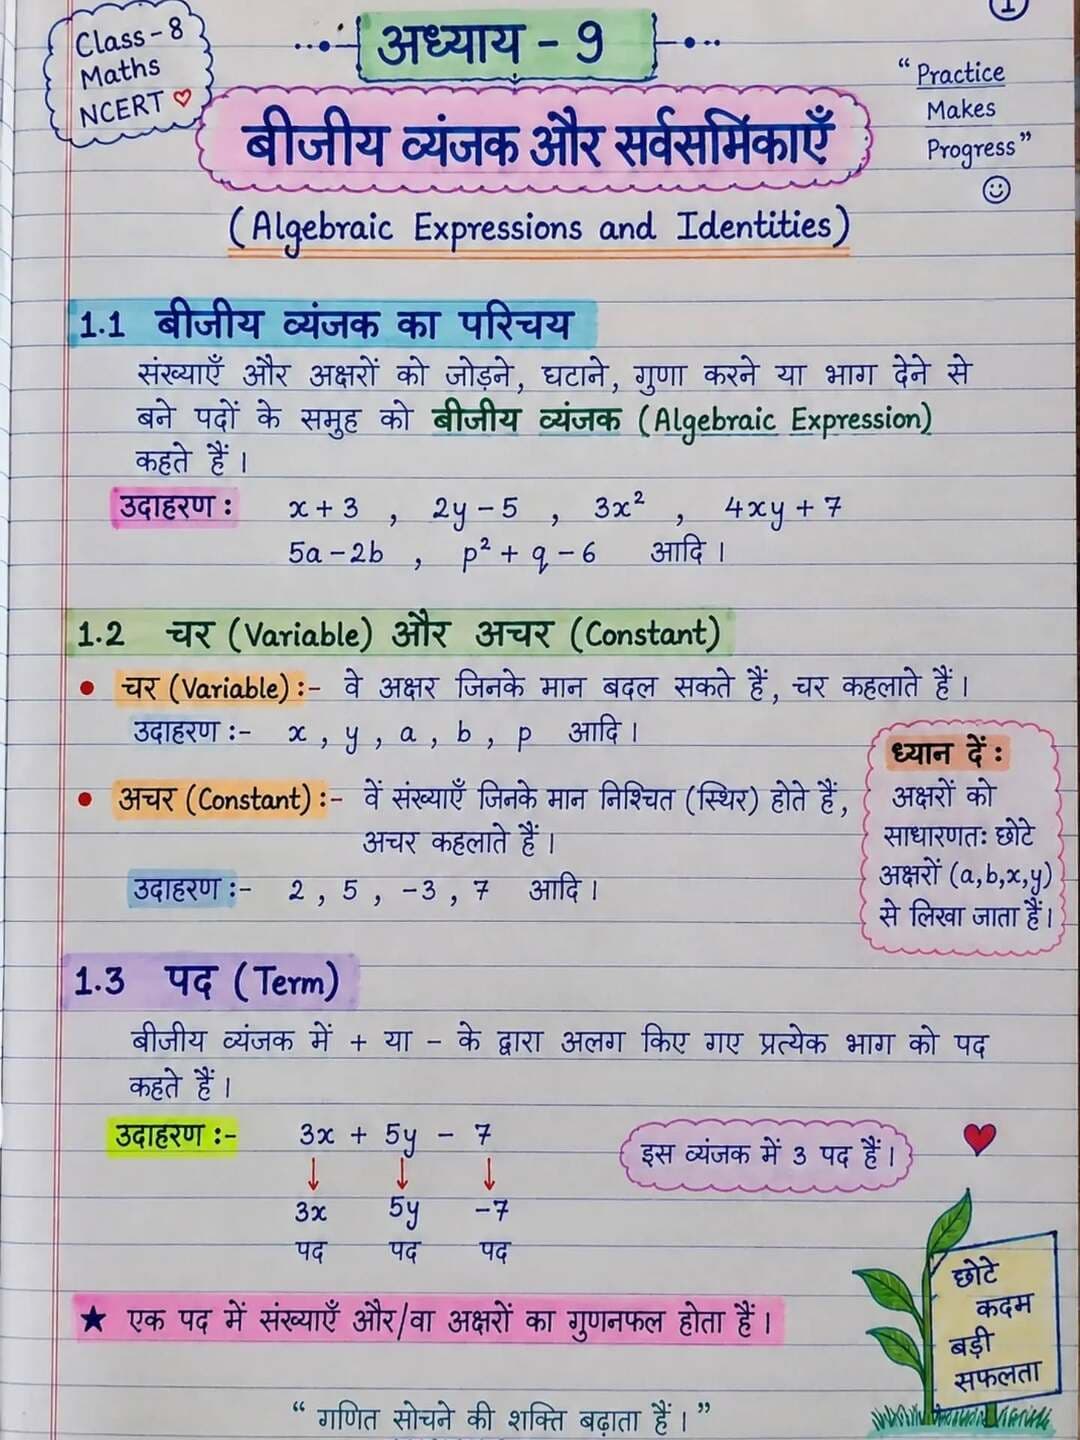 1
Class - 8
Maths
NCERT
अध्याय - 9
"Practice
Makes
Progress"
बीजीय व्यंजक और सर्वसमिकाएँ
(Algebraic Expressions and Identities)
1.1 बीजीय व्यंजक का परिचय
संख्याएँ और अक्षरों को जोड़ने, घटाने, गुणा करने या भाग देने से
बने पदों के समुह को बीजीय व्यंजक (Algebraic Expression)
कहते हैं।
उदाहरण : x + 3 , 2y - 5 , 3x² , 4xy + 7
5a - 2b , p² + q - 6 आदि।
1.2 चर (Variable) और अचर (Constant)
• चर (Variable) :- वे अक्षर जिनके मान बदल सकते हैं, चर कहलाते हैं।
उदाहरण :- x , y , a , b , p आदि।
• अचर (Constant) :- वें संख्याएँ जिनके मान निश्चित (स्थिर) होते हैं,
अचर कहलाते हैं।
उदाहरण :- 2 , 5 , -3 , 7 आदि।
ध्यान दें :
अक्षरों को
साधारणतः छोटे
अक्षरों (a,b,x,y)
से लिखा जाता हैं।
1.3 पद (Term)
बीजीय व्यंजक में + या - के द्वारा अलग किए गए प्रत्येक भाग को पद
कहते हैं।
उदाहरण :- 3x + 5y - 7
इस व्यंजक में 3 पद हैं।
3x 5y -7
पद पद पद
★ एक पद में संख्याएँ और/वा अक्षरों का गुणनफल होता हैं।
छोटे
कदम
बड़ी
सफलता
"गणित सोचने की शक्ति बढ़ाता हैं।"